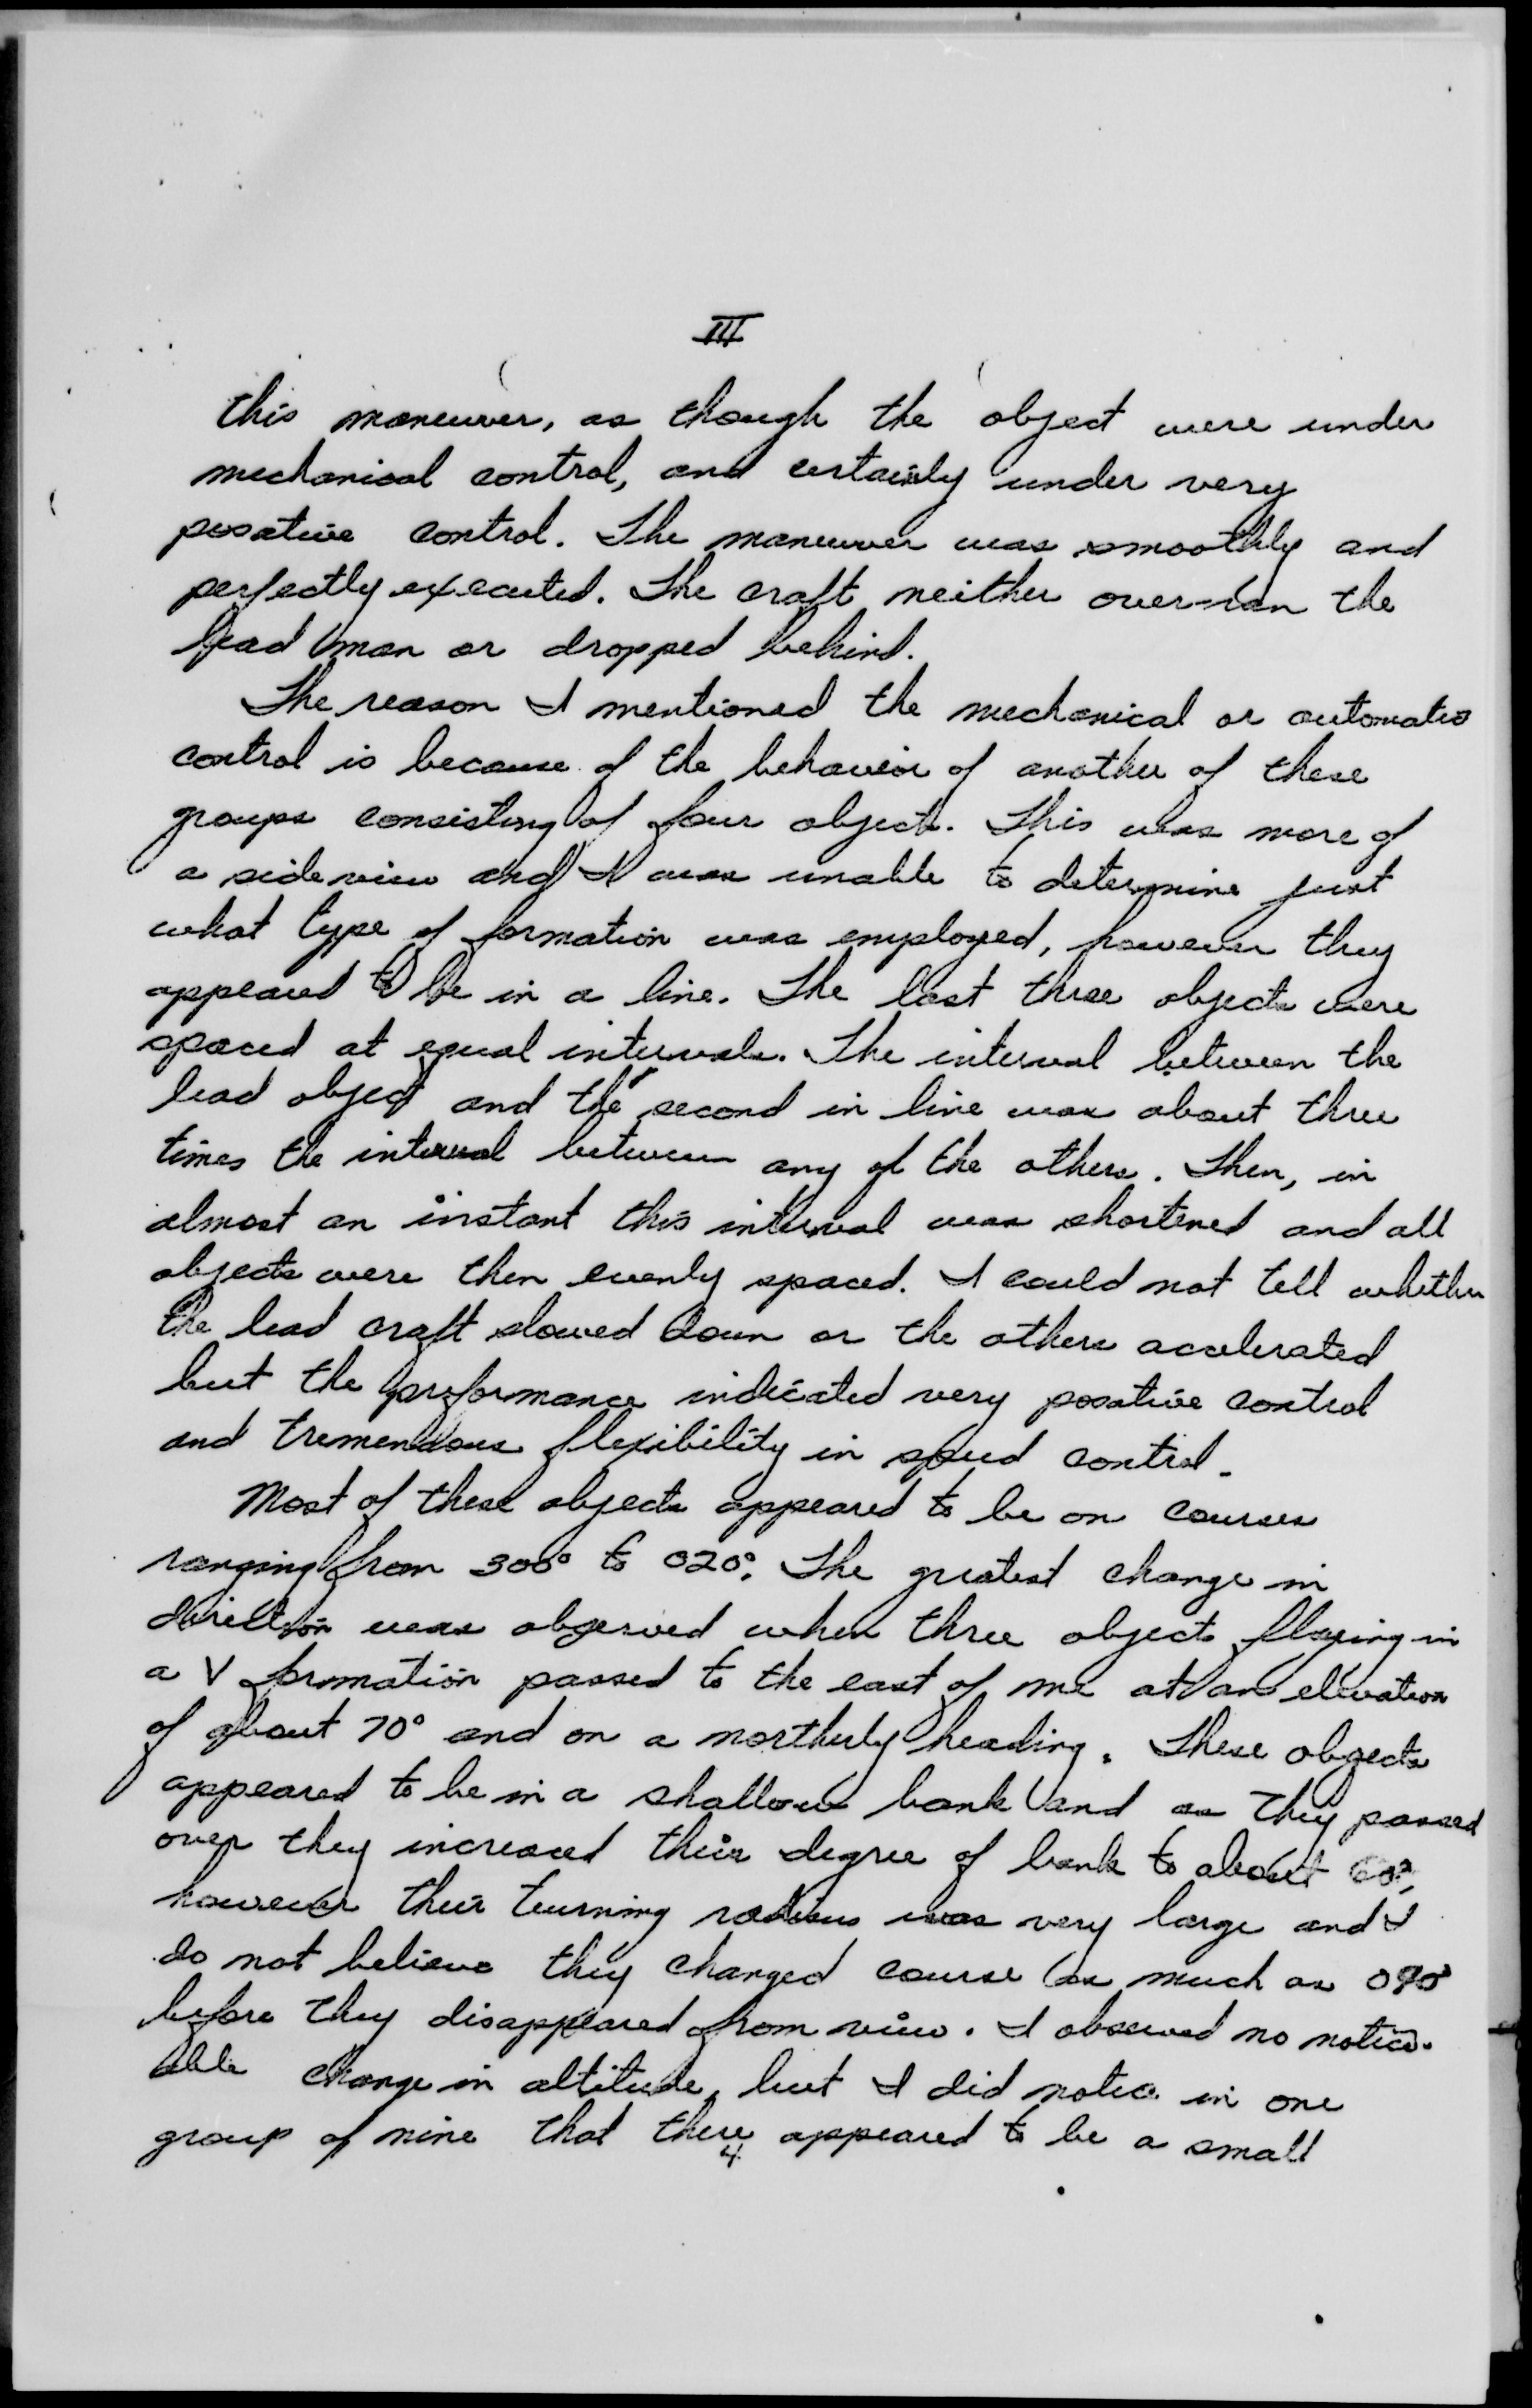 III
this maneuver, as though the object were under
mechanical control, and certainly under very
posative control. The maneuver was smoothly and
perfectly executed. The craft neither over-ran the
lead man or dropped behind.
The reason I mentioned the mechanical or automatic
control is because of the behavior of another of these
groups consisting of four object. This was more of
a side view and I was unable to determine just
what type of formation was employed, however they
appeared to be in a line. The last three objects were
spaced at equal intervals. The interval between the
lead object and the second in line was about three
times the interval between any of the others. Then, in
almost an instant this interval was shortened and all
objects were then evenly spaced. I could not tell whether
the lead craft slowed down or the others accelerated
but the performance indicated very posative control
and tremendous flexibility in speed control.
Most of these objects appeared to be on courses
ranging from 300° to 020°. The greatest change in
direction was observed when three objects flying in
a V formation passed to the east of me at an elevation
of about 70° and on a northerly heading. These objects
appeared to be in a shallow bank and as they passed
over they increased their degree of bank to about
however their turning radius was very large and I
do not believe they changed course as much as
before they disappeared from view. I observed no notice-
able change in altitude, but I did notice in one
group of nine that there appeared to be a small
4